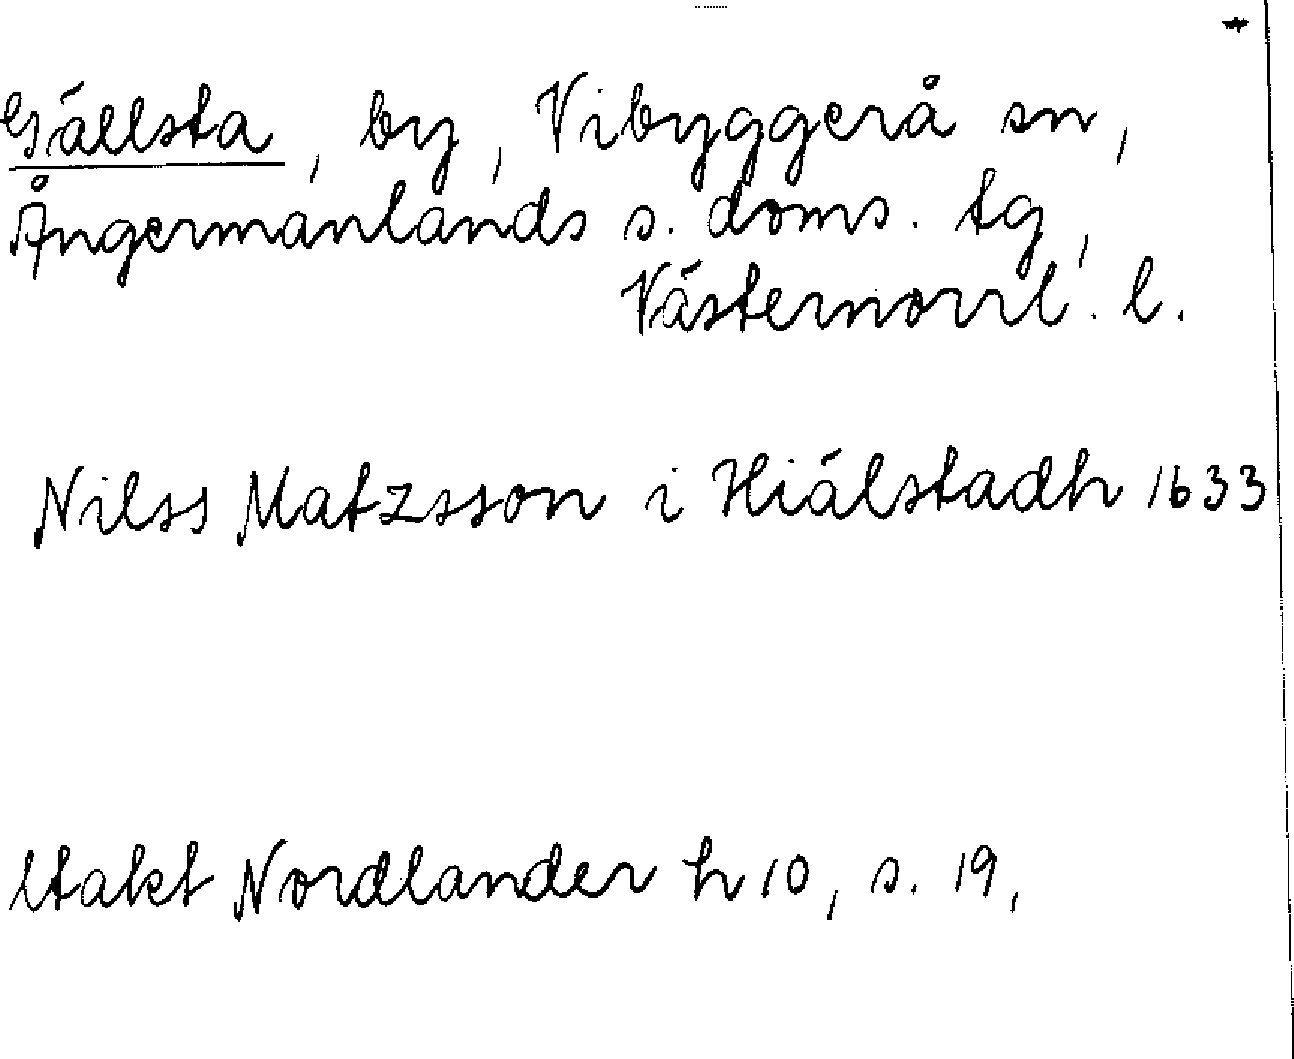 Gällsta, by, Vibyggerå sn,
Ångermanlands s. doms. tg,
Västernorrl. l.
Nilss Matzsson i Hiälstadh 1633
Utakt Nordlander h 10, s. 19,